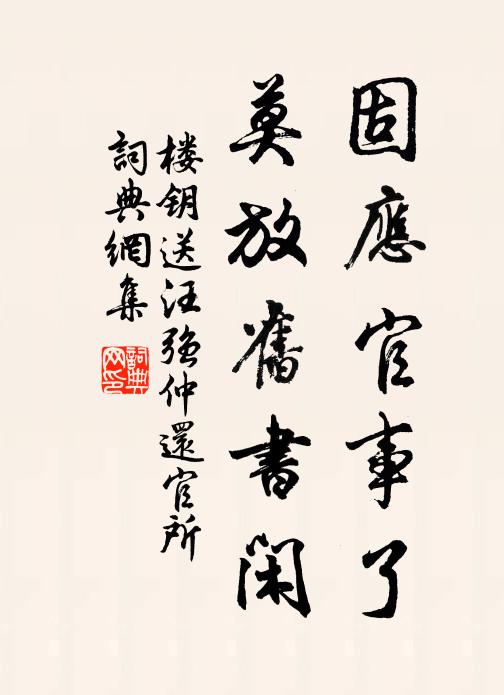 固應官事了
莫放舊書閑
楼钥送汪強仲還官所
詞典網集
詞典网印